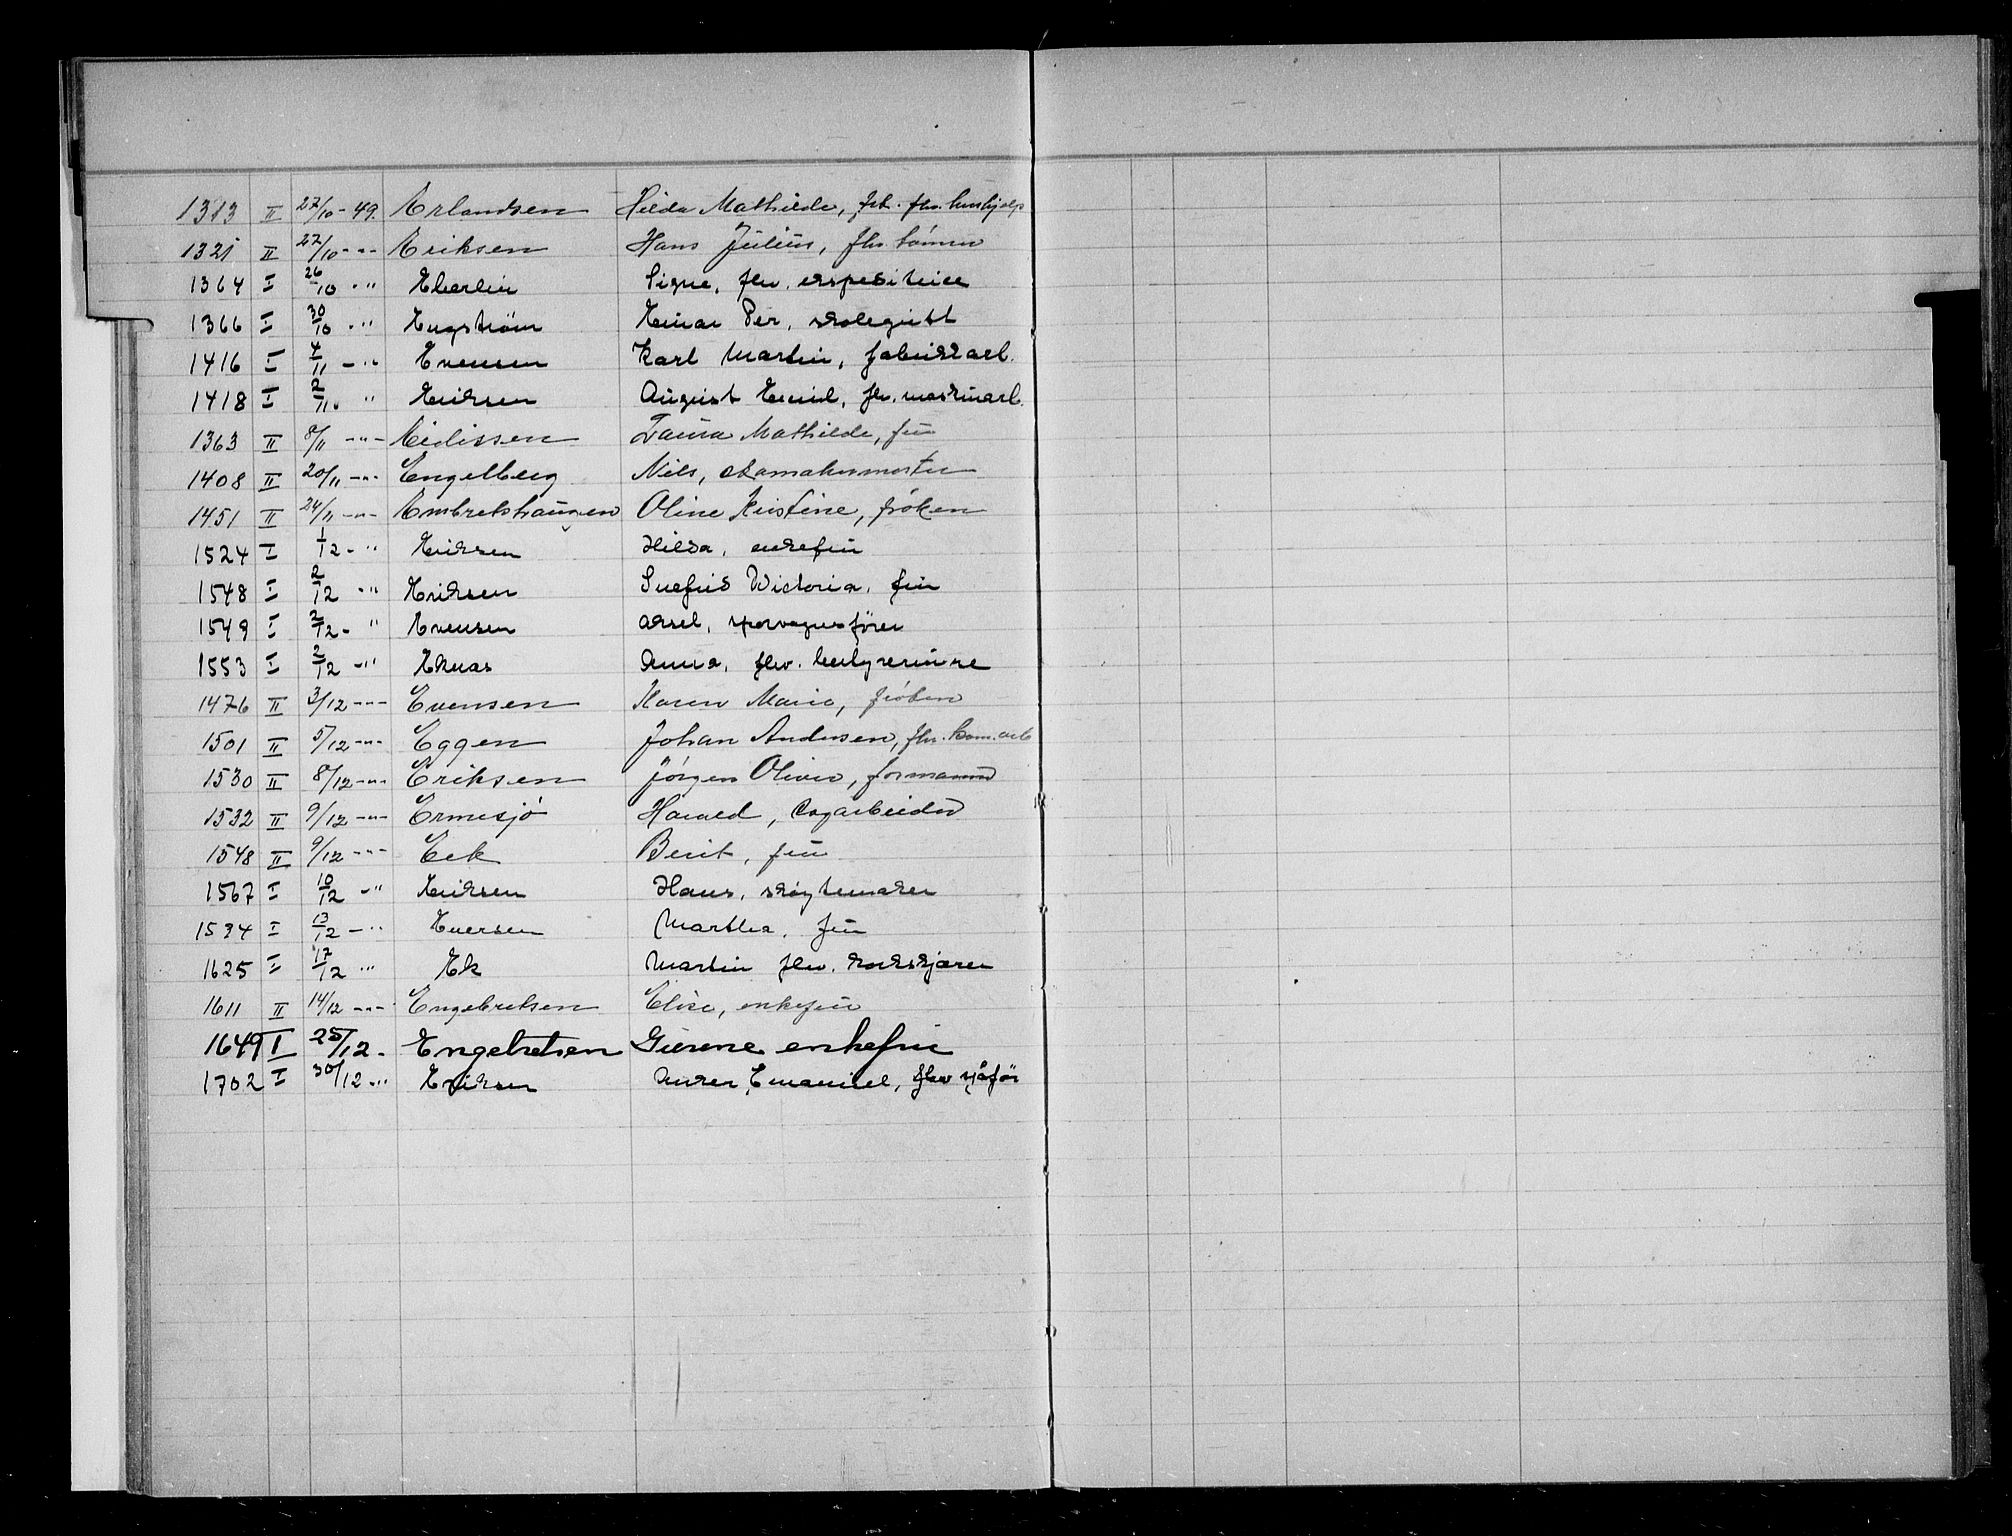 1313 II 27/10-49. Erlandsen Hilda Mathilde, frk. fhv. hushjelp
1321 II 27/10 -"- Eriksen Hans Julius, fhv. tömmer
1364 I 26/10 -" Eberlin Signe, fhv. ekspeditrice
1366 I 30/10 -" Engström Einar Per, skolegutt
1416 I 4/11 -" Evensen Karl Martin, fabrikkarb.
1418 I 2/11. " Eriksen August Emil, fhv. maskinarb.
1363 II 8/11 -"- Eidissen Laura Mathilde, fru
1408 II 20/11 -"- Engelberg Nils,
1451 II 24/11 -"- Embretshaugen Oline Kristine, fröken
1524 I 1/12 -" Eriksen Hilda, enkefru
1548 I 2/12 -" Eriksen Snefrid Victoria, fru
1549 I 2/12 -" Evensen Aksel, sporvognsförer
1553 I 2/12 -" Eknas Anna, fhv. bestyrerinne
1476 II 3/12 -"- Evensen Karen Marie, fröken
1501 II 5/12 -"- Eggen Johan Andersen, fhv. kom.arb
1530 II 8/12 -"- Eriksen Jörgen Oliver, formann
1532 II 9/12 -"- Ermesjö Harald, sagarbeider
1548 II 9/12 -"- Eek Berit, fru
1567 I 10/12 -" Eriksen Hans, sköytemaker
1534 I 13/12 -" Eversen Martha, fru
1625 I 17/12 -" Ek Martin fhv. korkskjærer
1611 II 14/12 -"- Engebretsen Elise, enkefru
1649 I 25/12 - Engebretsen Gurine enkefru
1702 I 30/12 -" Eriksen Anker Emanuel, fhv sjåför